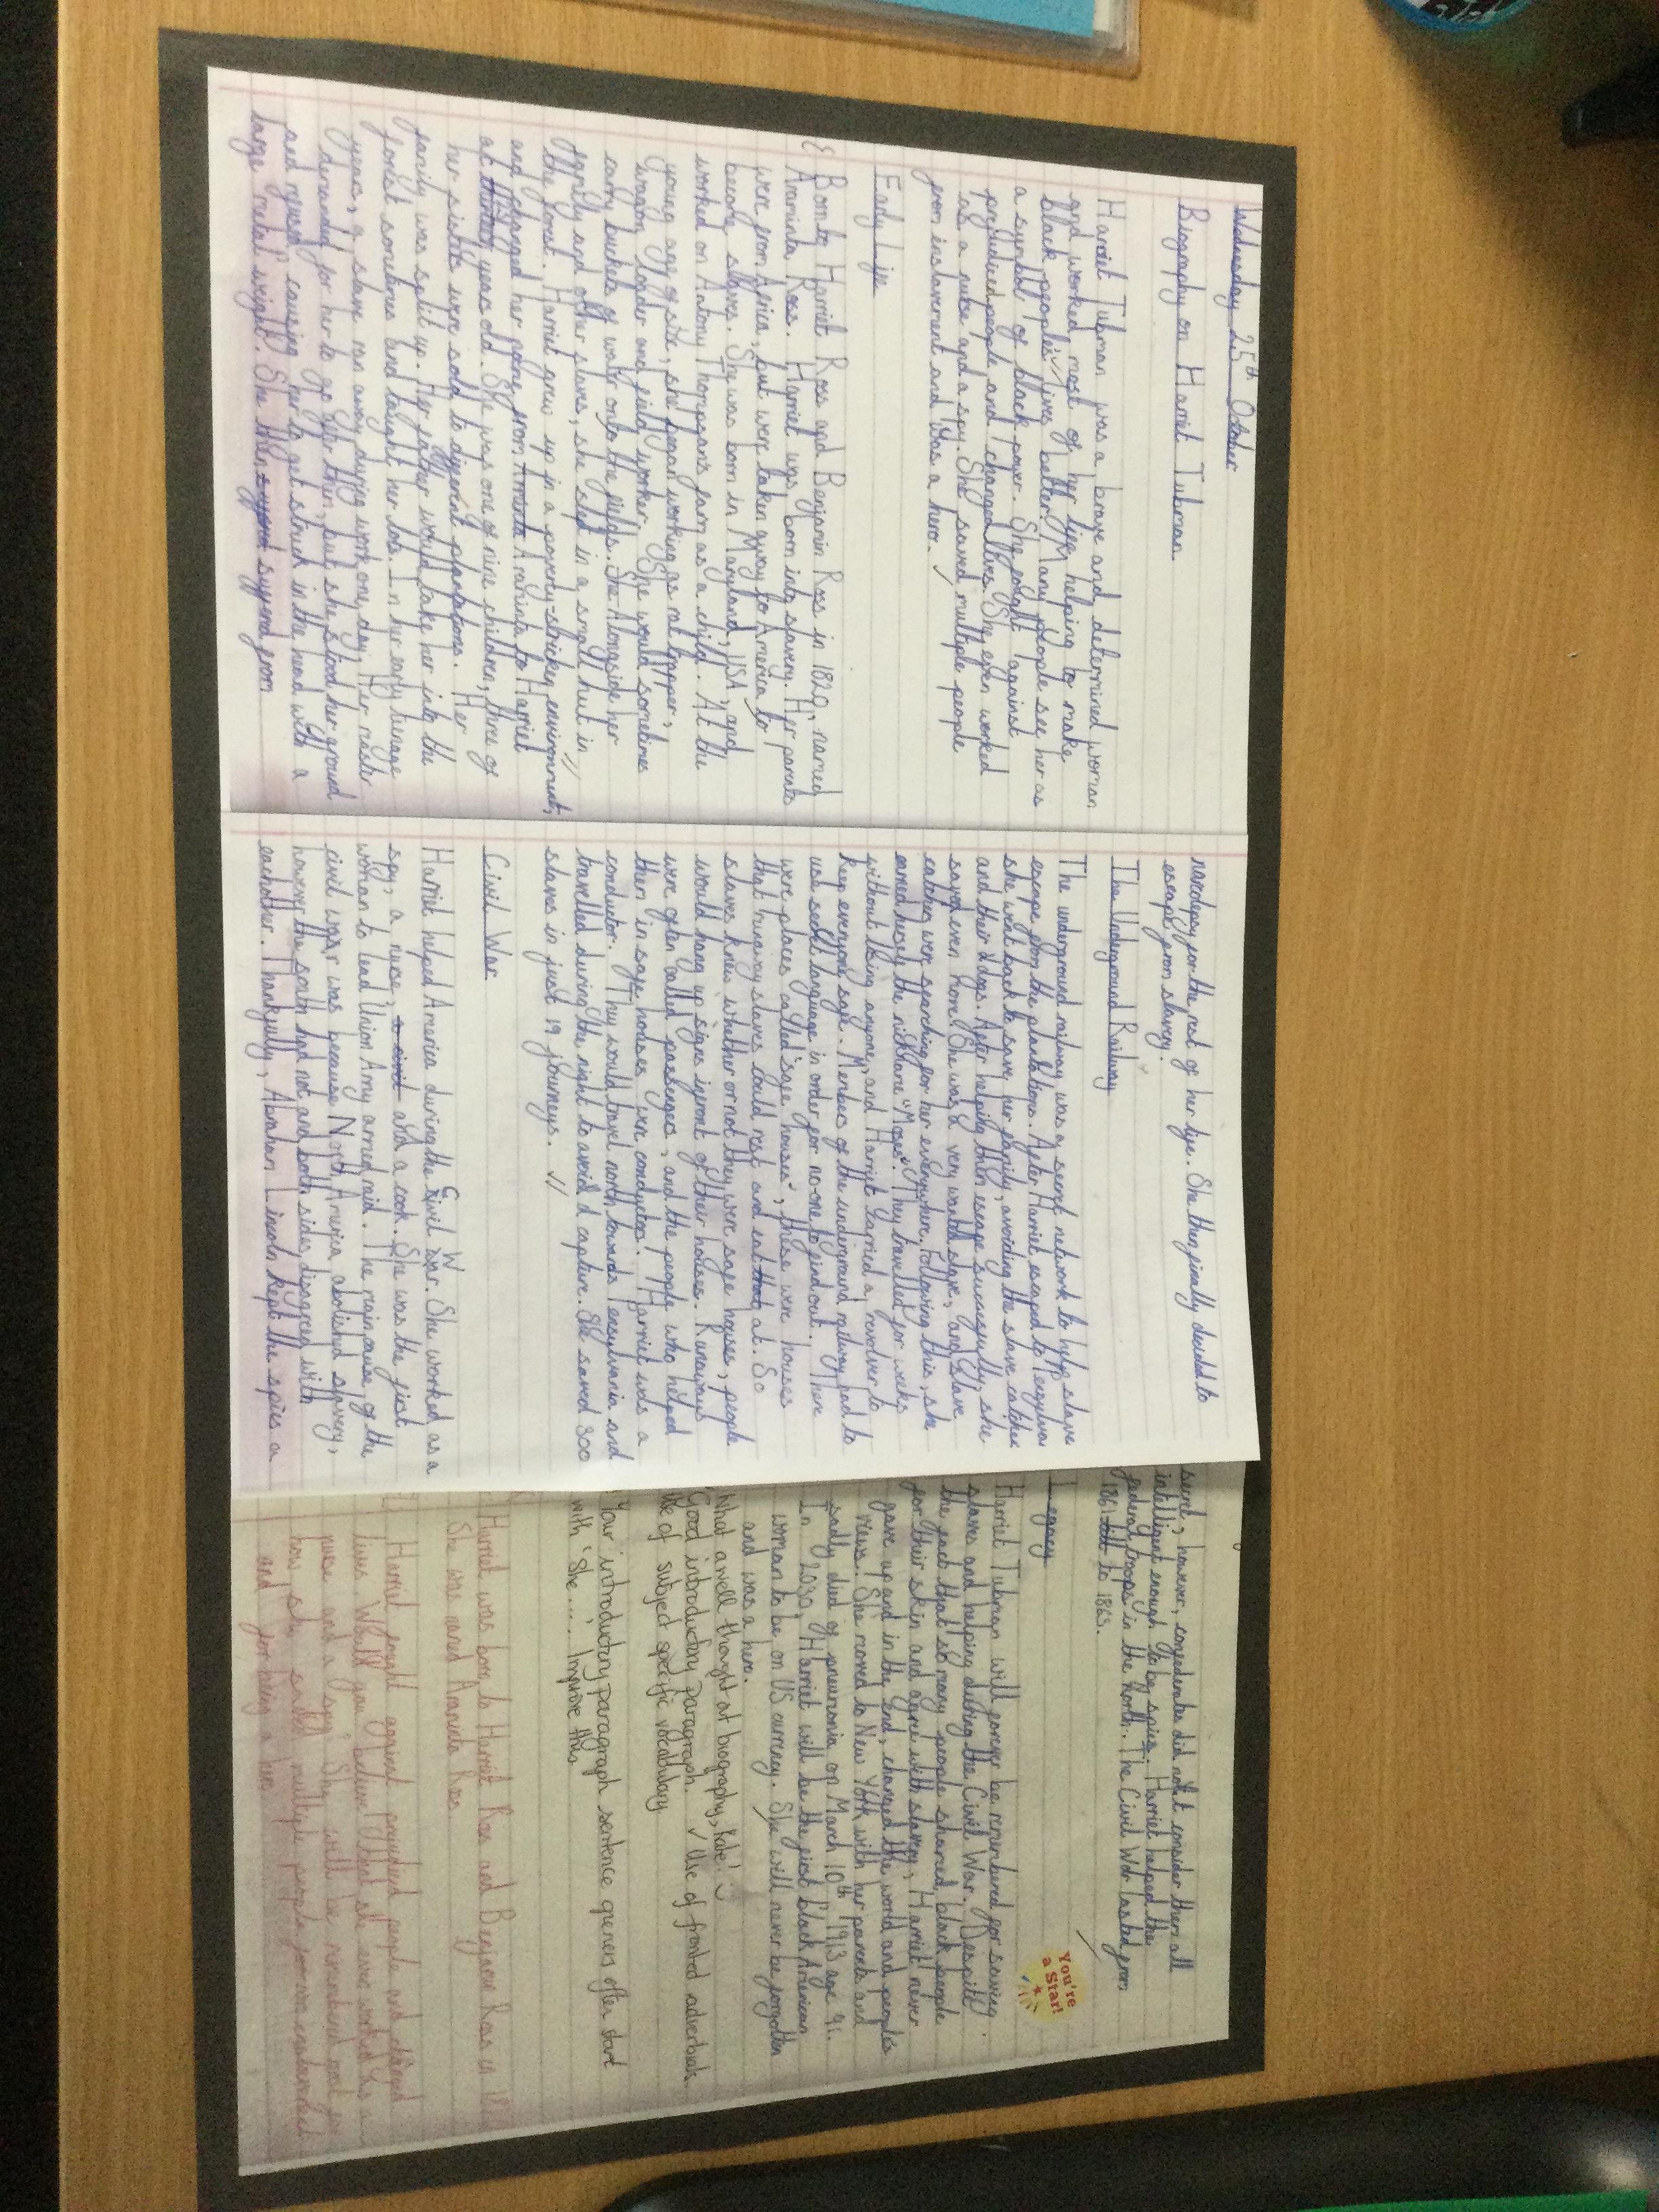 Wednesday 25th October
Biography on Harriet Tubman.
Harriet Tubman was a brave and determined woman
and worked most of her life helping to make
black peoples' lives better. Many people see her as
a symbol of black power. She fought against
prejudiced people and changed lives. She even worked
as a nurse and a spy. She saved multiple people
from enslavement and was a hero.
Early life
Born to Harriet Ross and Benjamin Ross in 1820, named
Araminta Ross. Harriet was born into slavery. Her parents
were from Africa, but were taken away to America to
become slaves. She was born in Maryland, USA, and
worked on Antony Thompson's farm as a child. At the
young age of six, she began working as rat trapper,
wagon loader and field worker. She would sometimes
carry buckets of water onto the fields. She Alongside her
family and other slaves, she slept in a small hut in
the forest. Harriet grew up in a poverty-stricken environment,
and changed her name from Araminta to Harriet
at years old. She was one of nine children, three of
her sisters were sold to different plantations. Her
family was split up. Her father would take her into the
forest sometimes and taught her lots. In her early teenage
years, a slave ran away during work one day. Her master
demanded for her to go after him, but she stood her ground
and refused causing her to get struck in the head with a
large metal weight. She then suffered from
narcolepsy for the rest of her life. She then finally decided to
escape from slavery.
The Underground Railway
The underground railway was a secret network to help slave
escape from the plantations. After Harriet escaped to
she went back to save her family, avoiding the slave catcher
and their dogs. After helping them escape sucessfully, she
saved even more! She was a very wanted slave, and slave
catchers were searching for her everywhere. Following this, she
earned herself the nickname "Moses". They travelled for weeks
without telling anyone, and Harriet carried a revolver to
keep everyone safe. Members of the underground railway had to
use secret language in order for no-one to find out. There
were places called "safe houses", these were houses
that runaway slaves could rest and eat at. So
slaves knew whether or not they were safe houses, people
would hang up signs infront of their houses. Runaways
were often called passengers, and the people who helped
them in safe houses were conductors. Harriet was a
conductor. They would travel north towards Pensylvania and
travelled during the night to avoid capture. She saved 300
slaves in just 19 journeys.
Civil War
Harriet helped America during the Civil War. She worked as a
spy, a nurse, and a cook. She was the first
woman to lead Union Army armed raid. The main cause of the
civil war was because North America abolished slavery,
however the south had not and both sides disagreed with
eachother. Thankfully, Abraham Lincoln kept the spies a
secret, however, confederates did not consider them all
intelligent enough to be spies. Harriet helped the
federal troops in the North. The Civil War lasted from
1861 to 1865.
Legacy
Harriet Tubman will forever be remembered for saving
slaves and helping during the Civil War. Despite
the fact that so many people shamed black people
for their skin and agree with slavery, Harriet never
gave up and in the end, changed the world and peoples
views! She moved to New York with her parents and
sadly died of pneumonia on March 10th 1913 age 91.
In 2030, Harriet will be the first black American
woman to be on US currency. She will never be forgotten
and was a hero.
You're
a Star!
What a well thought out biography, Kate!
Good introductory paragraph. ✓ Use of fronted adverbials.
Use of subject specific vocabulary
Your introductory paragraph sentence openers often start
with 'She...'. Improve this.
Harriet was born to Harriet Ross and Benjamin Ross in
She was named Araminta Ross
Harriet fought against prejudiced people and changed
lives. Would you believe that she even worked as a
nurse and a spy! She will be remembered most for
how she saved multiple people from enslavement
and for being a hero